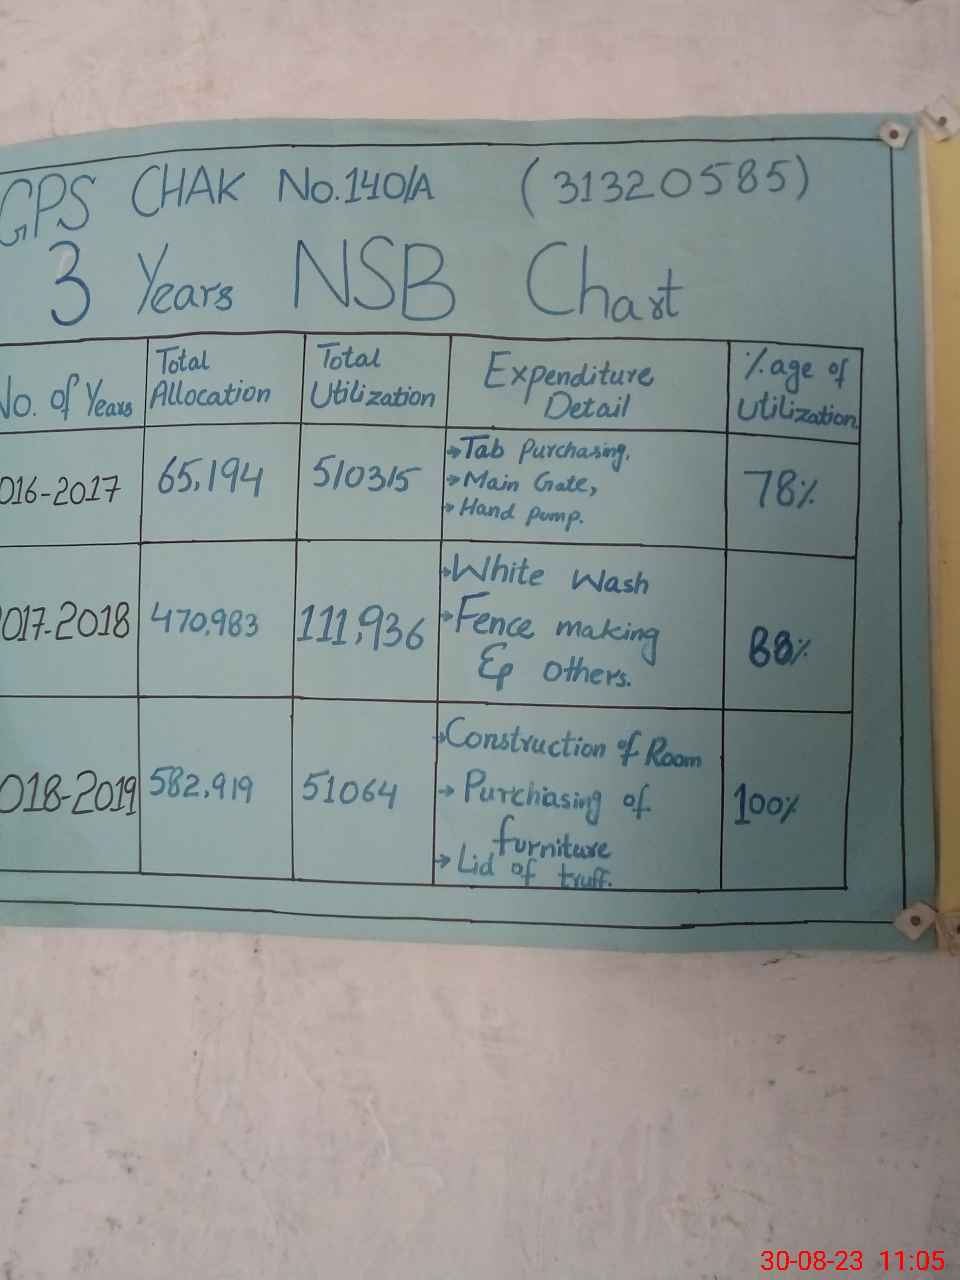 GPS CHAK No.140/A (31320585)
3 Years NSB Chart
No. of Years Total Allocation Total Utilization Expenditure Detail %age of Utilization
016-2017 65,194 510315 → Tab Purchasing, 78%
→ Main Gate,
→ Hand pump.
017-2018 470,983 111,936 → White Wash 88%
→ Fence making
& others.
018-2019 582,919 51064 → Construction of Room 100%
→ Purchasing of
furniture
→ Lid of truff.
30-08-23 11:05